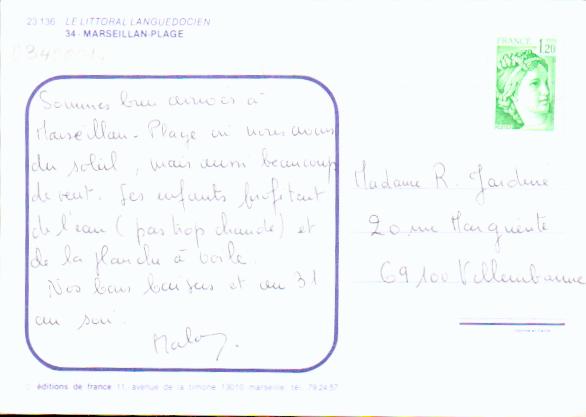 23 136 LE LITTORAL LANGUEDOCIEN
34 - MARSEILLAN-PLAGE
FRANCE
1,20
Sommes bien arrivés à
Marseillan-Plage où nous avons
du soleil, mais aussi beaucoup
de vent. Les enfants profitent
de l'eau (pas trop chaude) et
de la planche à voile.
Nos bons baisers et au 31
au soir.
Madame R. Jardiné
20 rue Marguerite
69100 Villeurbanne
éditions de france 11, avenue de la timone 13010 marseille tél. 79.24.57